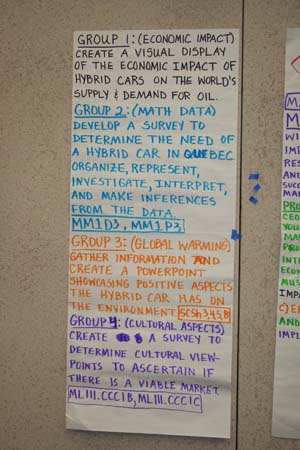 GROUP 1: (ECONOMIC IMPACT)
CREATE A VISUAL DISPLAY
OF THE ECONOMIC IMPACT OF
HYBRID CARS ON THE WORLD'S
SUPPLY & DEMAND FOR OIL.
GROUP 2: (MATH DATA)
DEVELOP A SURVEY TO
DETERMINE THE NEED OF
A HYBRID CAR IN QUEBEC
ORGANIZE, REPRESENT,
INVESTIGATE, INTERPRET,
AND MAKE INFERENCES
FROM THE DATA.
MM1D3, MM1P3
GROUP 3: (GLOBAL WARMING)
GATHER INFORMATION AND
CREATE A POWERPOINT
SHOWCASING POSITIVE ASPECTS
THE HYBRID CAR HAS ON
THE ENVIRONMENT. SCSh 3,4,5,8
GROUP 4: (CULTURAL ASPECTS)
CREATE A SURVEY TO
DETERMINE CULTURAL VIEW-
POINTS TO ASCERTAIN IF
THERE IS A VIABLE MARKET.
MLIII.CCC1B, MLIII.CCC1C